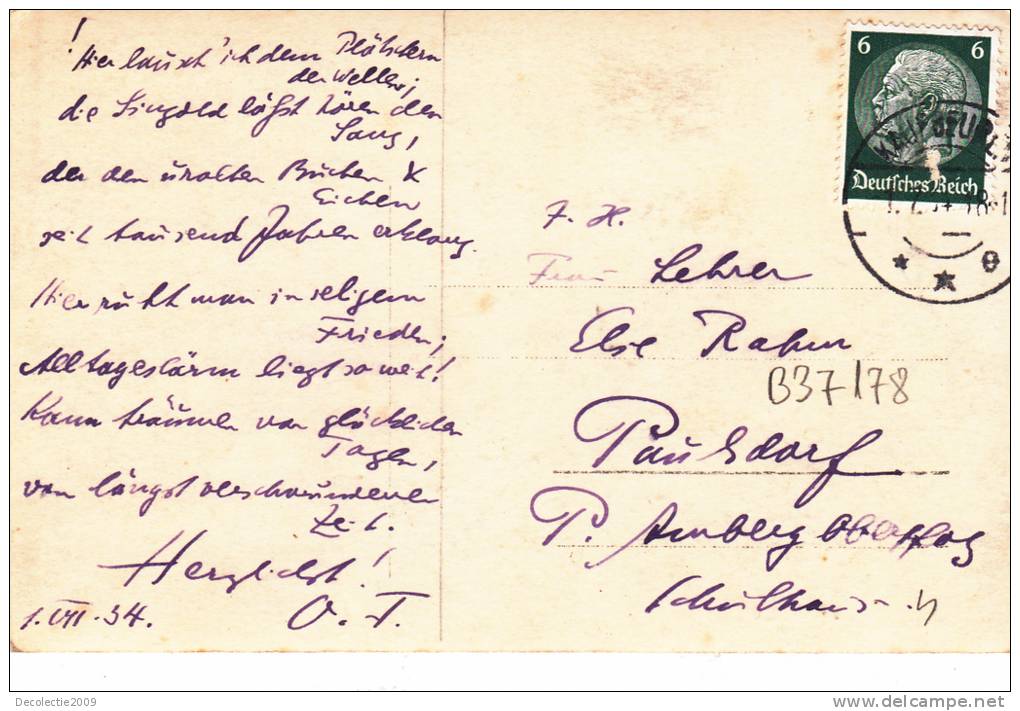 !
Hier lausch' ich dem Plätschern
der Wellen;
die Singold läßt hören den
Sang,
der den uralten Buchen &
Eichen
seit tausend Jahren erklang.
Hier ruht man in seligem
Frieden;
Alltagslärm liegt so weit!
Kann träumen von glücklichen
Tagen,
von längst verschwundenen
Zeit.
Herzlichst!
O. T.
1. VII. 34.
6 6
Deutsches Reich
F. H.
Frau Lehrer
Else Rahm
B37/178
Paulsdorf
P. Amberg Oberpfalz
Schulhaus
Decolectie2009
delcampe.net